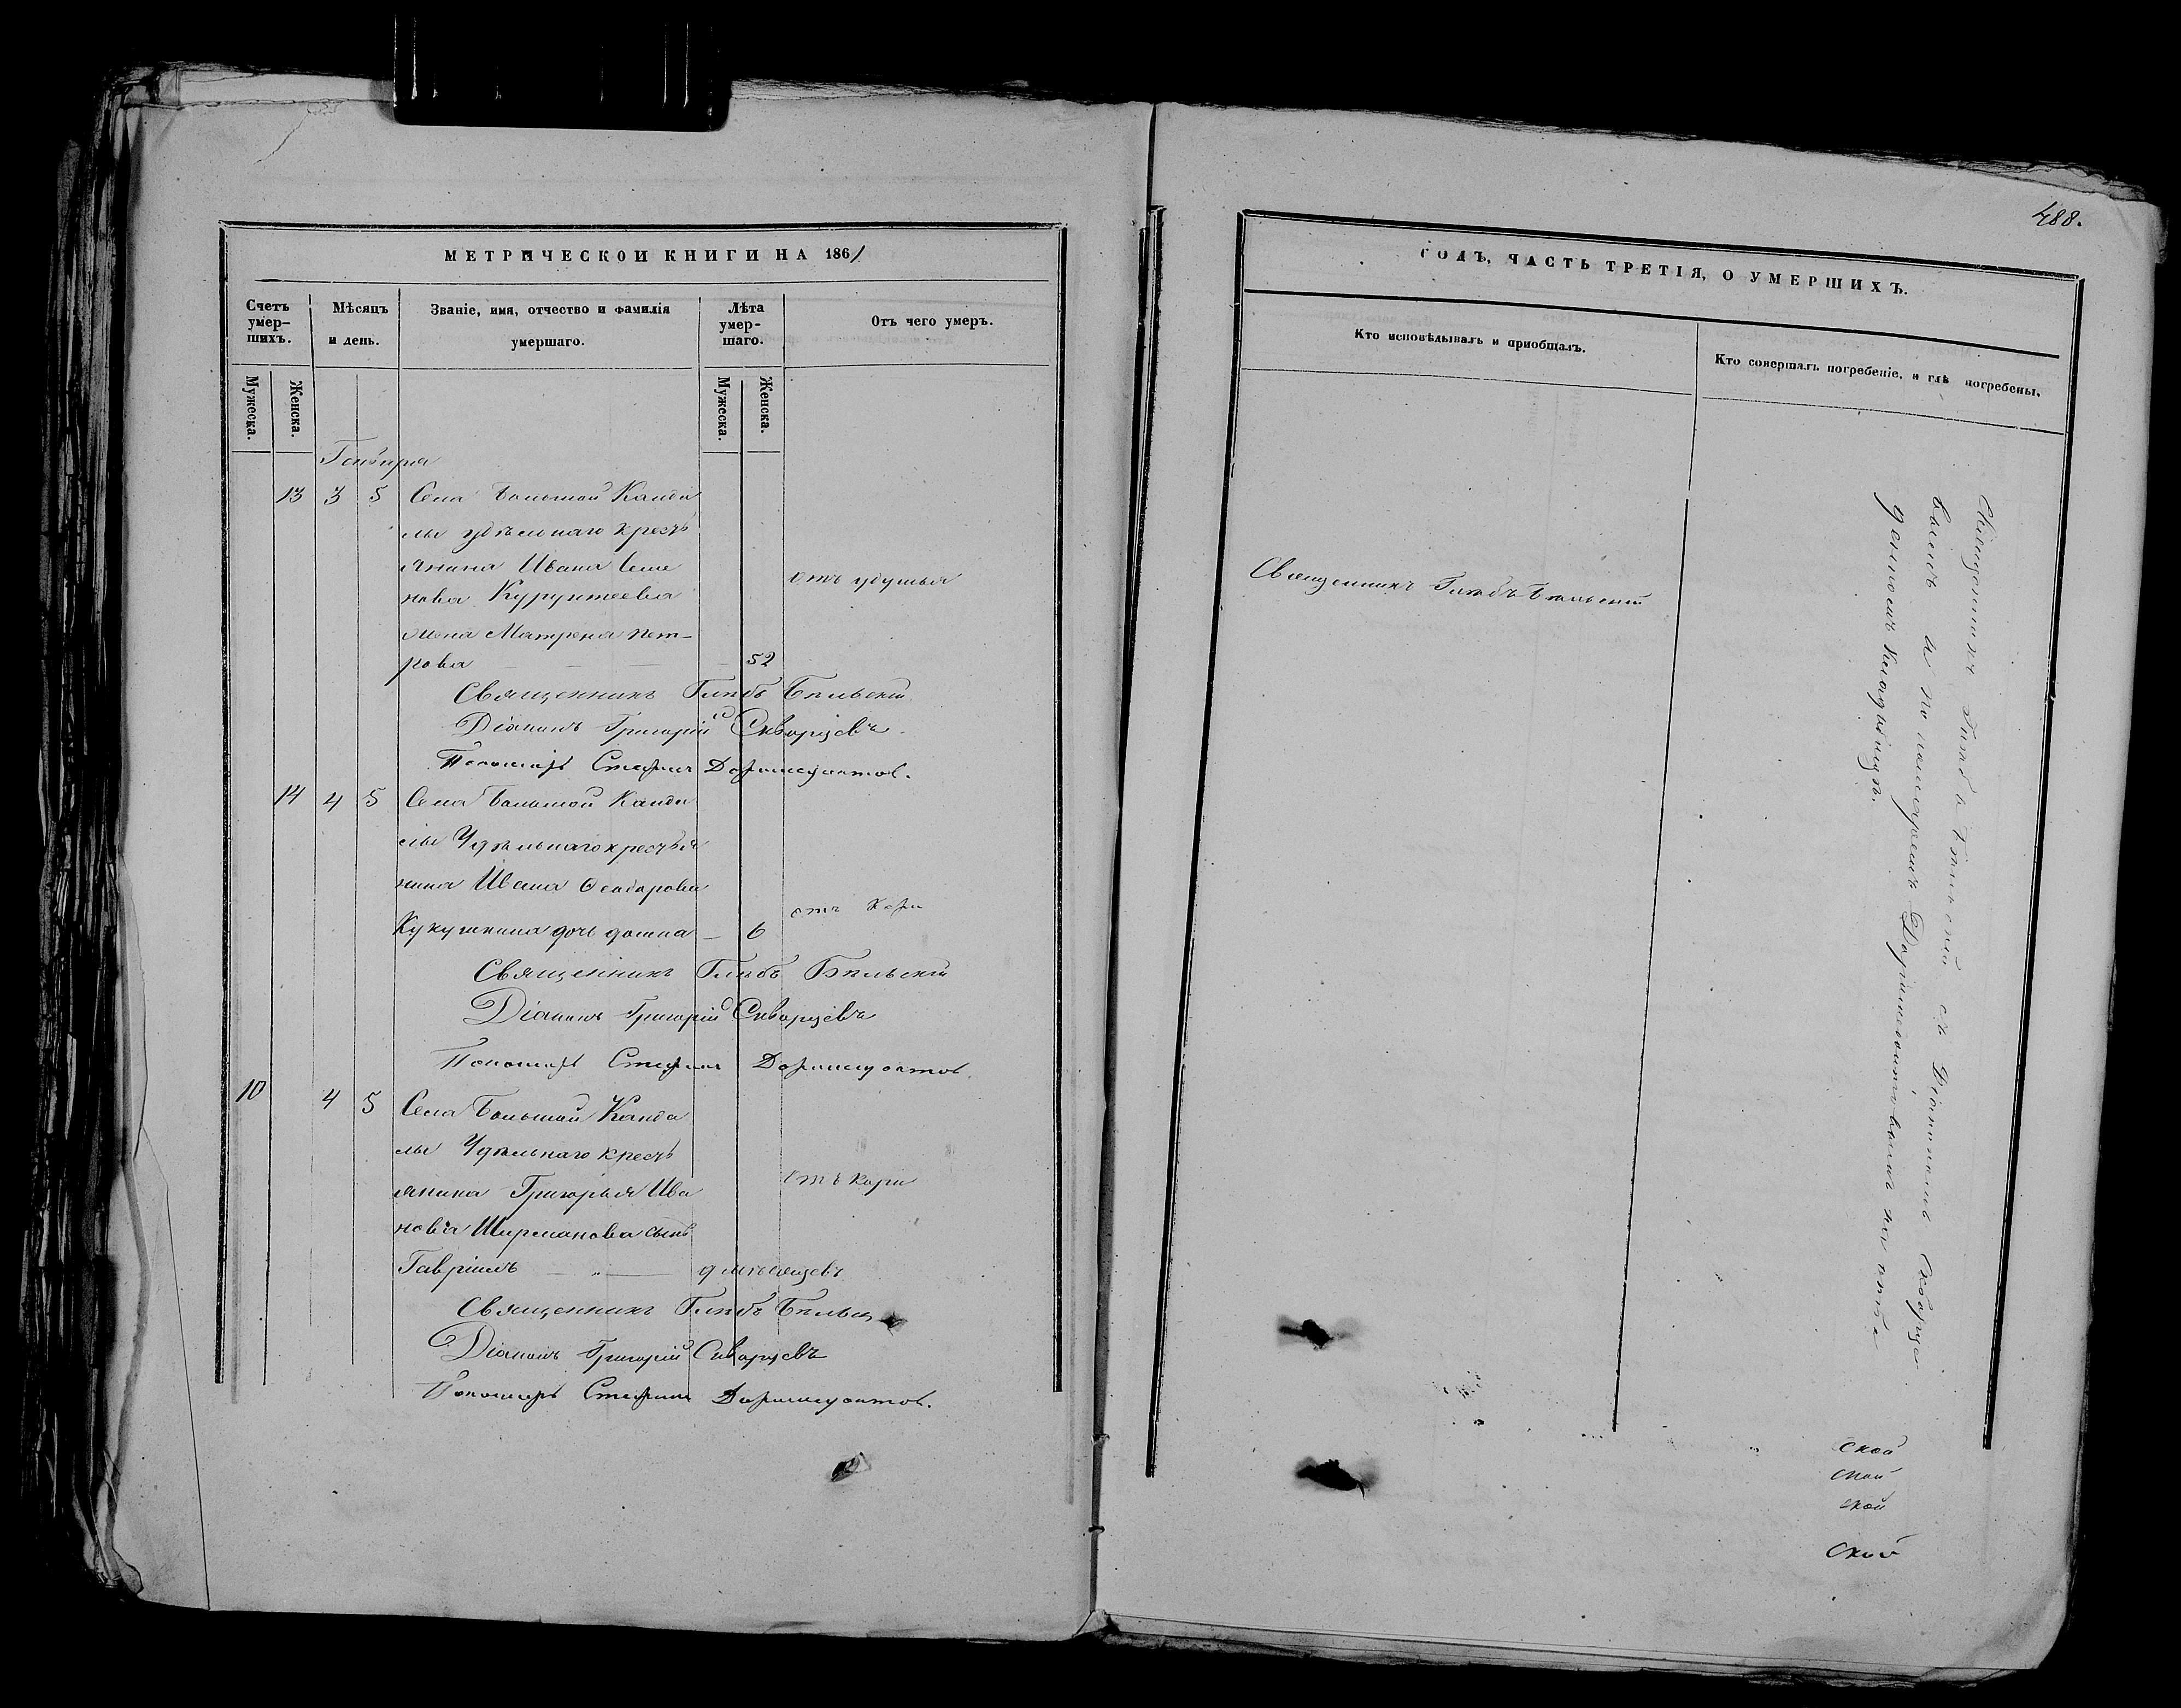 МЕТРИЧЕСКОЙ КНИГИ НА 1861
Счетъ умер-шихъ.
Мѣсяцъ и день.
Званіе, имя, отчество и фамилія умершаго.
Лѣта умер-шаго.
Отъ чего умеръ.
Мужеска.
Женска.
Мужеска.
Женска.
Генваря
13 3 5 Села Большой Канда
лы удѣльнаго кресть
янина Ивана Семе
нова Курунтеева
отъ удушья
жена Матрена Пет-
рова 52
Священникъ Глѣбъ Бѣльскій
Діаконъ Григорій Скворцовъ
Пономарь Стефанъ Доримедонтов.
14 4 5 Села Большой Канда
лы Удѣльнаго крестья
нина Ивана Ѳеодорова
отъ Кори
Кукушкина дочь домна 6
Священникъ Глѣбъ Бѣльскій
Діаконъ Григорій Скворцовъ
Пономарь Стефанъ Доримедонтов.
10 4 5 Села Большой Канда
лы Удѣльнаго кресть
янина Григорья Ива
отъ Кори
нова Ширманова сынъ
Гавріилъ 9 мѣсяцевъ
Священникъ Глѣбъ Бѣльск
Діаконъ Григорій Скворцовъ
Пономарь Стефанъ Доримедонтов.
488.
ГОДЪ, ЧАСТЬ ТРЕТІЯ, О УМЕРШИХЪ.
Кто исповѣдывалъ и пріобщалъ.
Кто совершалъ погребеніе, и гдѣ погребены.
Священникъ Глѣбъ Бѣльскій
Священникъ Глѣбъ Бѣльскій съ Діакономъ Скворцо
вымъ и пономаремъ Доримедонтовымъ на
кладбищѣ.
ской
ской
ской
ской